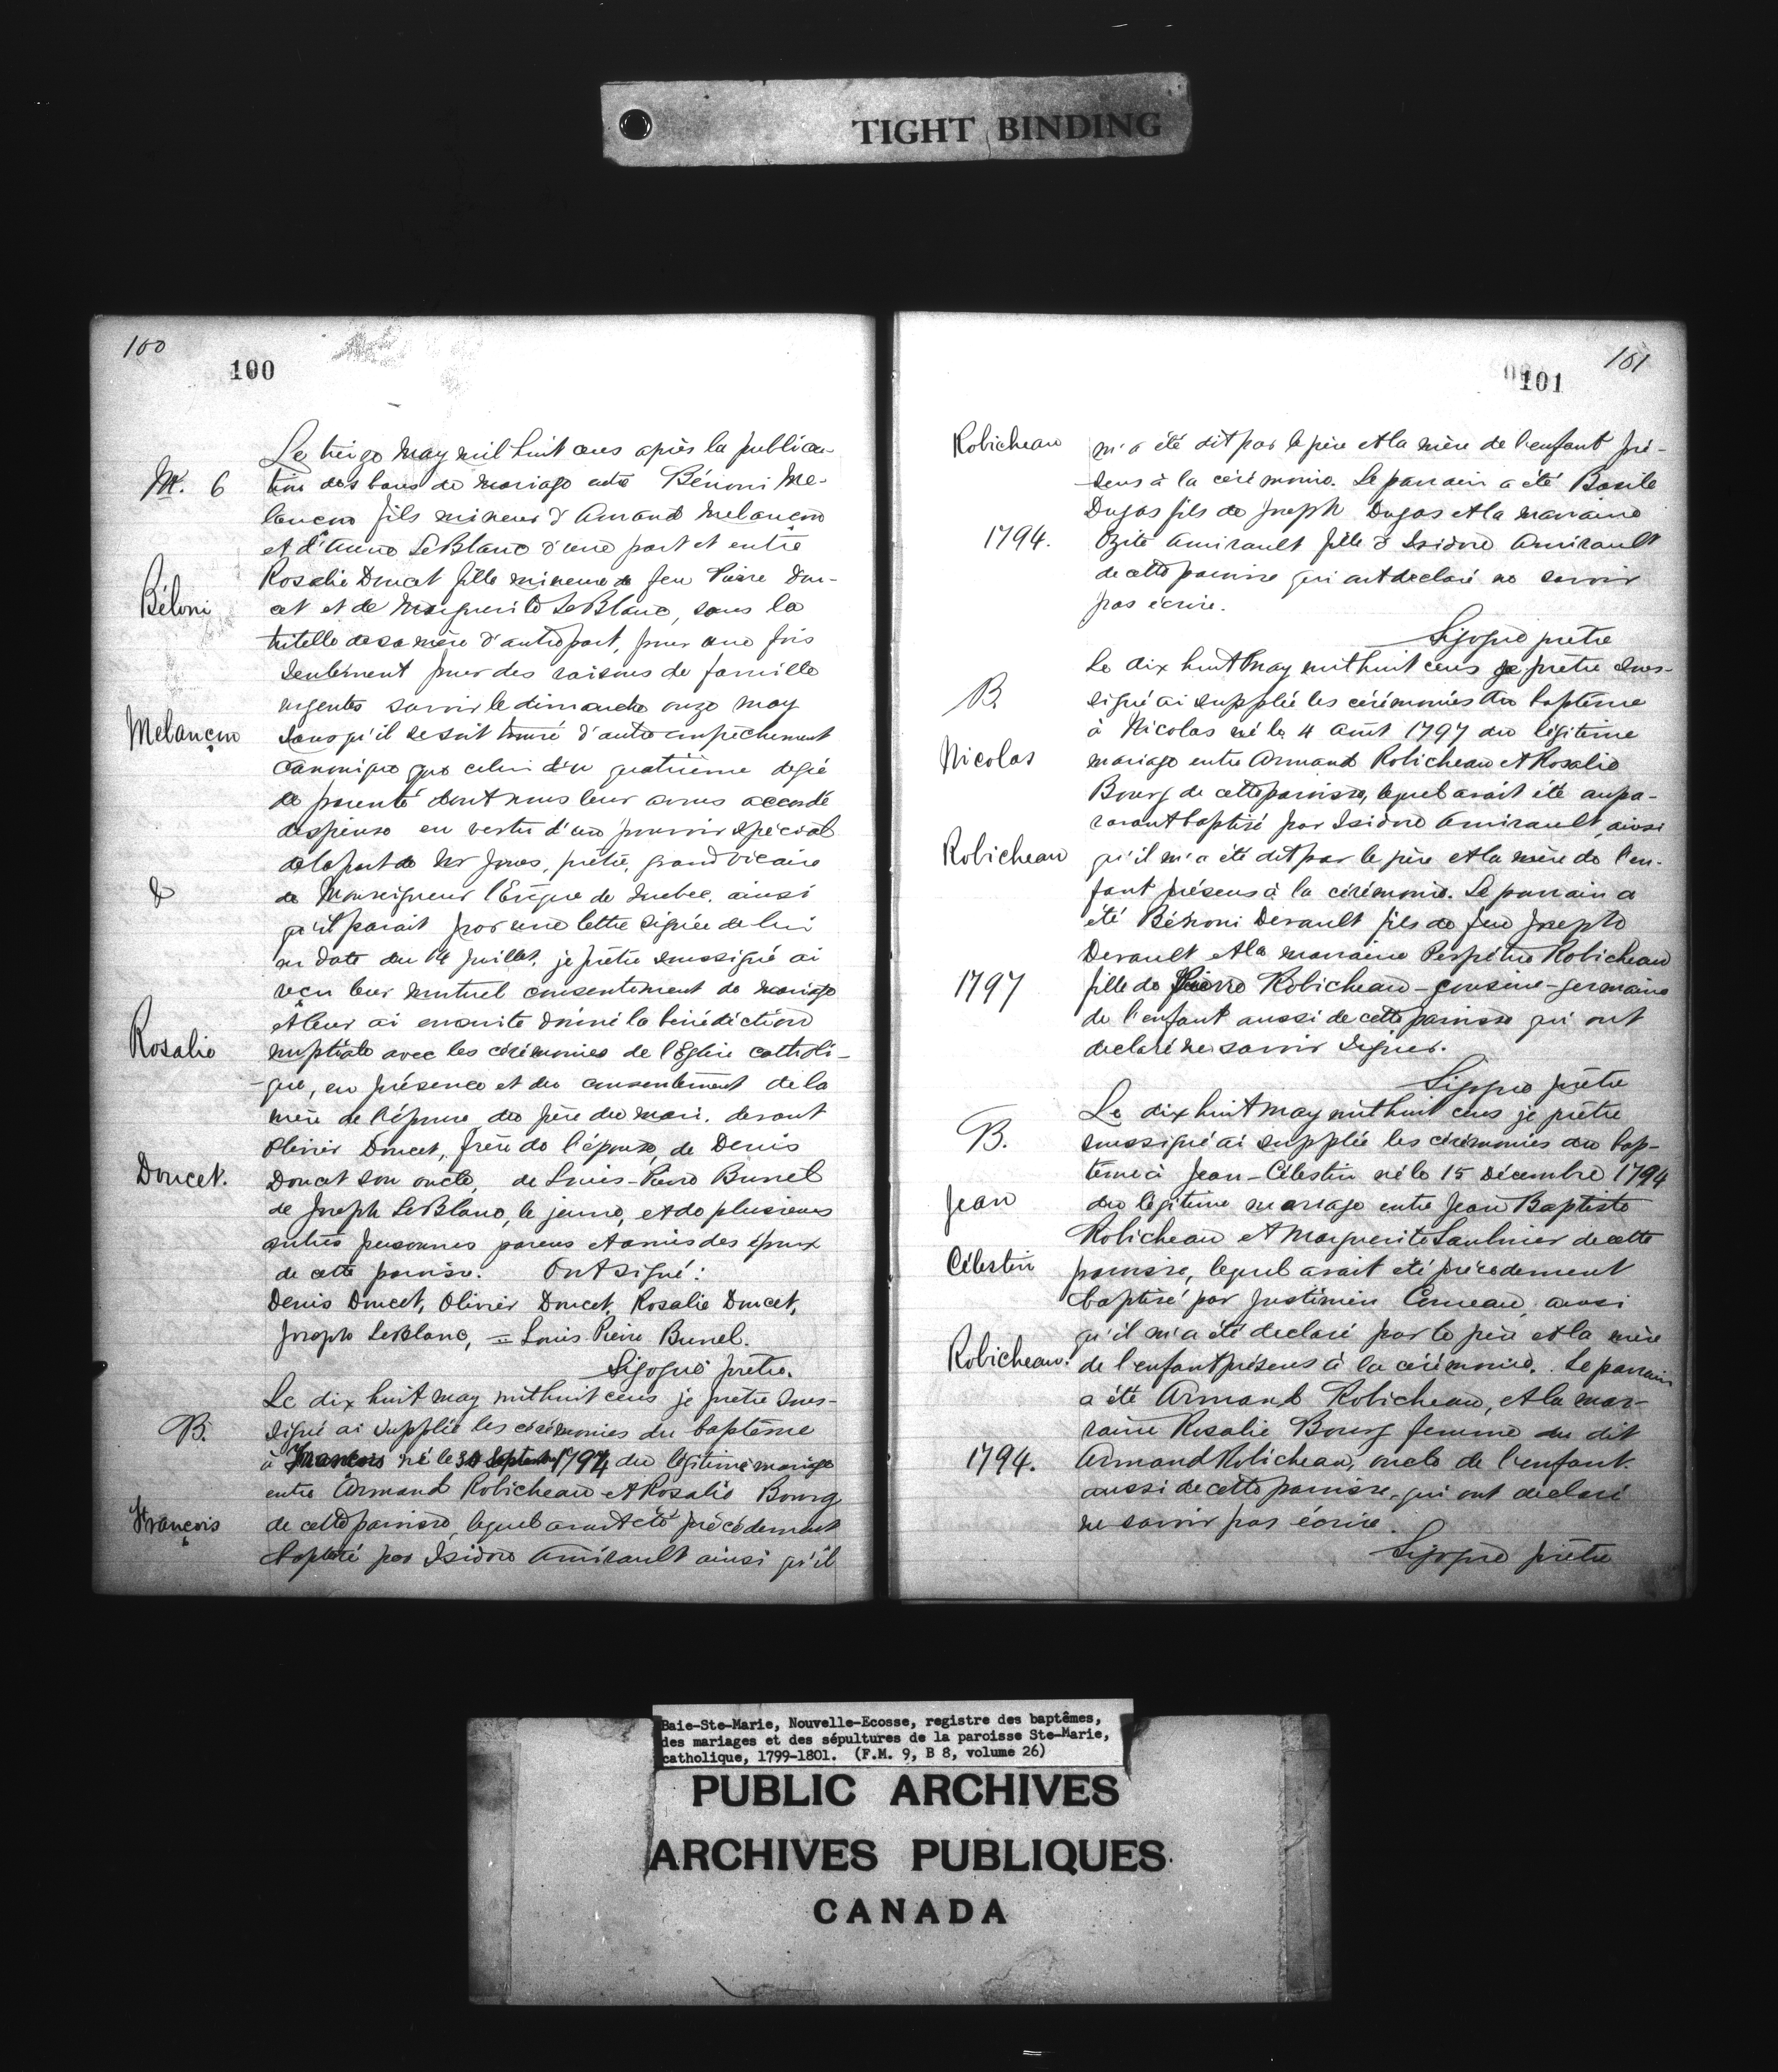 TIGHT BINDING
100
100
Le treize May mil huit cens après la publica-
M. 6
tion des bans de mariage entre Bénoni Me-
lançon fils mineur d'Amand Melançon
et d'Anne LeBlanc d'une part et entre
Rosalie Doucet fille mineure de feu Pierre Dou-
Béloni
cet et de Marguerite LeBlanc, sous la
tutelle de sa mère d'autre part, pour une fois
seulement pour des raisons de famille
urgentes savoir le dimanche onze may
Melançon
sans qu'il se soit trouvé d'autre empêchement
canonique que celui d'un quatrième degré
de parenté dont nous leur avons accordé
dispense en vertu d'un pouvoir spécial
de la part de Mr Jones, prêtre, grand vicaire
&
de Monseigneur l'Evêque de Quebec, ainsi
qu'il parait par une lettre signée de lui
en date du 14 Juillet, je prêtre soussigné ai
reçu leur mutuel consentement de mariage
et leur ai ensuite donné la bénédiction
Rosalie
nuptiale avec les cérémonies de l'Eglise catholi-
que, en présence et du consentement de la
mère de l'épouse du père du mari. devant
Olivier Doucet, frère de l'épouse, de Denis
Doucet.
Doucet son oncle, de Louis-Pierre Bunel
de Joseph LeBlanc, le jeune, et de plusieurs
autres personnes parens et amis des époux
de cette paroisse. Ont signé:
Denis Doucet, Olivier Doucet, Rosalie Doucet,
Joseph LeBlanc, = Louis Pierre Bunel.
Sigogne prêtre.
Le dix huit may mil huit cens je prêtre sous-
B.
signé ai supplié les cérémonies du baptême
à François né le 30 Septembre 1794 du légitime mariage
entre Armand Robicheau et Rosalie Bourg
François
de cette paroisse, lequel avait été précédement
baptisé par Isidore Amirault ainsi qu'il
101
101
Robicheau
m'a été dit par le père et la mère de l'enfant pré-
sens à la cérémonie. Le parrain a été Basile
Dugas fils de Joseph Dugas et la marraine
1794.
Ozite Amirault fille d'Isidore Amirault
de cette paroisse qui ont declaré ne savoir
pas écrire.
Sigogne prêtre
Le dix huit May mil huit cens je prêtre sous-
B.
signé ai supplié les cérémonies du baptême
à Nicolas né le 4 Août 1797 du légitime
Nicolas
mariage entre Armand Robicheau et Rosalie
Bourg de cette paroisse, lequel avait été aupa-
ravant baptisé par Isidore Amirault, ainsi
Robicheau
qu'il m'a été dit par le père et la mère de l'en-
fant présens à la cérémonie. Le parrain a
été Bénoni Derault fils de feu Joseph
Derault et la marraine Perpétue Robicheau
1797
fille de Pierre Robicheau - cousine-germaine
de l'enfant aussi de cette paroisse qui ont
declaré ne savoir signer.
Sigogne prêtre
Le dix huit may mil huit cens je prêtre
B.
soussigné ai supplié les cérémonies du bap-
tême à Jean-Célestin né le 15 Décembre 1794
Jean
du légitime mariage entre Jean Baptiste
Robicheau et Marguerite Saulnier de cette
Célestin
paroisse, lequel avait été précédement
baptisé par Justinien Comeau, ainsi
qu'il m'a été declaré par le père et la mère
Robicheau.
de l'enfant présens à la cérémonie. Le parrain
a été Armand Robicheau, et la mar-
raine Rosalie Bourg femme du dit
1794.
Armand Robicheau, oncle de l'enfant
aussi de cette paroisse, qui ont declaré
ne savoir pas écrire.
Sigogne prêtre
Baie-Ste-Marie, Nouvelle-Ecosse, registre des baptêmes,
des mariages et des sépultures de la paroisse Ste-Marie,
catholique, 1799-1801. (F.M. 9, B 8, volume 26)
PUBLIC ARCHIVES
ARCHIVES PUBLIQUES
CANADA